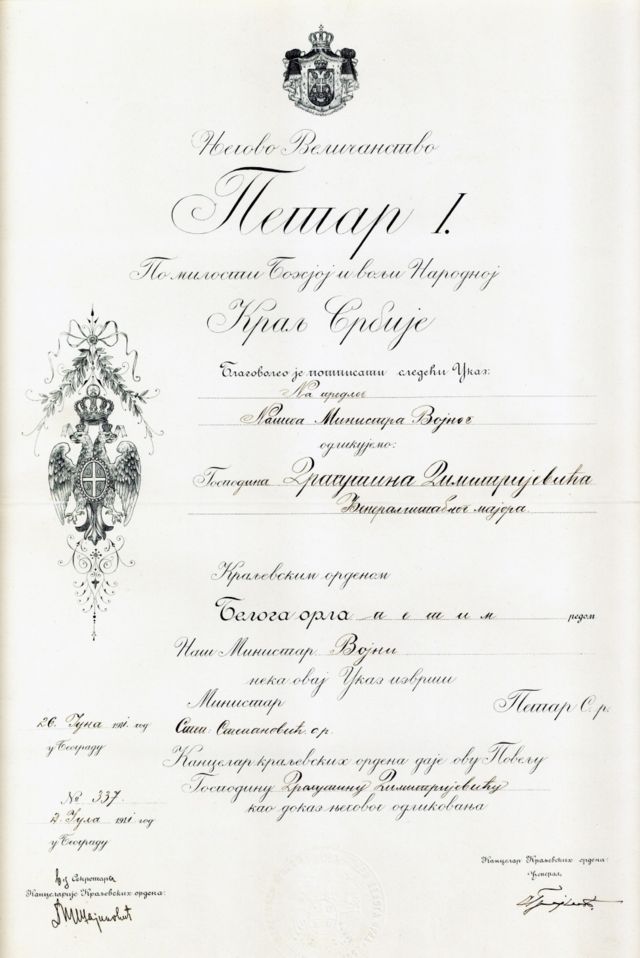 Његово Величанство
Петар I.
По милости Божјој и вољи Народној
Краљ Србије
Благоволео је потписати следећи Указ:
На предлог
Нашега Министра Војног
одликујемо:
Господина Драгутина Димитријевића
Ђенералштабног мајора
Краљевским орденом
Белога орла петим редом
Наш Министар Војни
нека овај Указ изврши
Министар
Петар С. р.
26. Јуна 1911. год
Степ. Степановић с.р.
у Београду
Канцелар краљевских ордена даје ову Повељу
Господину Драгутину Димитријевићу
као доказ његовог одликовања
№ 337.
Јула 1911 год
у Београду
Канцелар Краљевских ордена:
Ђенерал,
Секретар
Канцеларије Краљевских ордена: